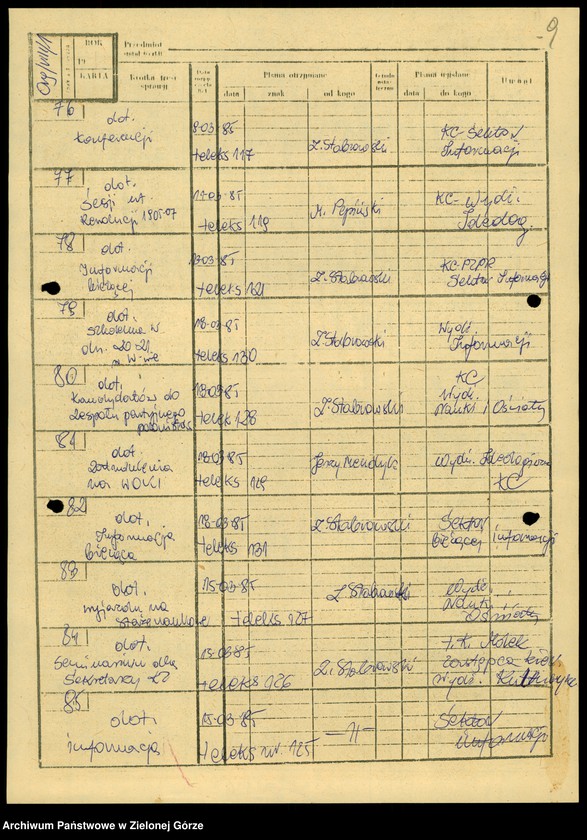 9
Org/myśl
ROK
19
KARTA
Przedmiot
Krótka treść
sprawy
Pisma otrzymane
data
znak
od kogo
Pisma wysłane
data
do kogo
Uwagi
76
dot.
Konferencji
8-03-85
teleks 117
Z. Stabrowski
KC-Sektor
Informacji
77
dot.
Sesji nt.
Rewolucji 1905-07
teleks 119
KC-Wydz.
Ideolog.
78
dot.
Informacji
bieżącej
13-03-85
teleks 121
Z. Stabrowski
KC-PZPR
Sektor Informacji
79
dot.
szkolenia w
dn. 20-21
w W-wie
18-03-85
teleks 130
Z. Stabrowski
Wydz.
Informacji
80
dot.
Kandydatów do
zespołu partyjnego
18-03-85
teleks 128
Z. Stabrowski
KC
Wydz.
Nauki i Oświaty
81
dot.
na WOKI
18-03-85
teleks 129
Jerzy Mendyk
Wydz. Ideologiczny
KC
82
dot.
Informacja
bieżąca
18-03-85
teleks 131
Z. Stabrowski
Sektor
bieżącej informacji
83
dot.
wyjazdu na
staże naukowe
15-03-85
teleks 127
Z. Stabrowski
Wydz.
Nauki i
Oświaty
84
dot.
Seminarium dla
Sekretarzy KZ
15-03-85
teleks 126
Z. Stabrowski
zastępca kier.
Wydz. Kultury
85
dot.
informacja
15-03-85
teleks nr. 125
—II—
Sektor
informacji
Archiwum Państwowe w Zielonej Górze